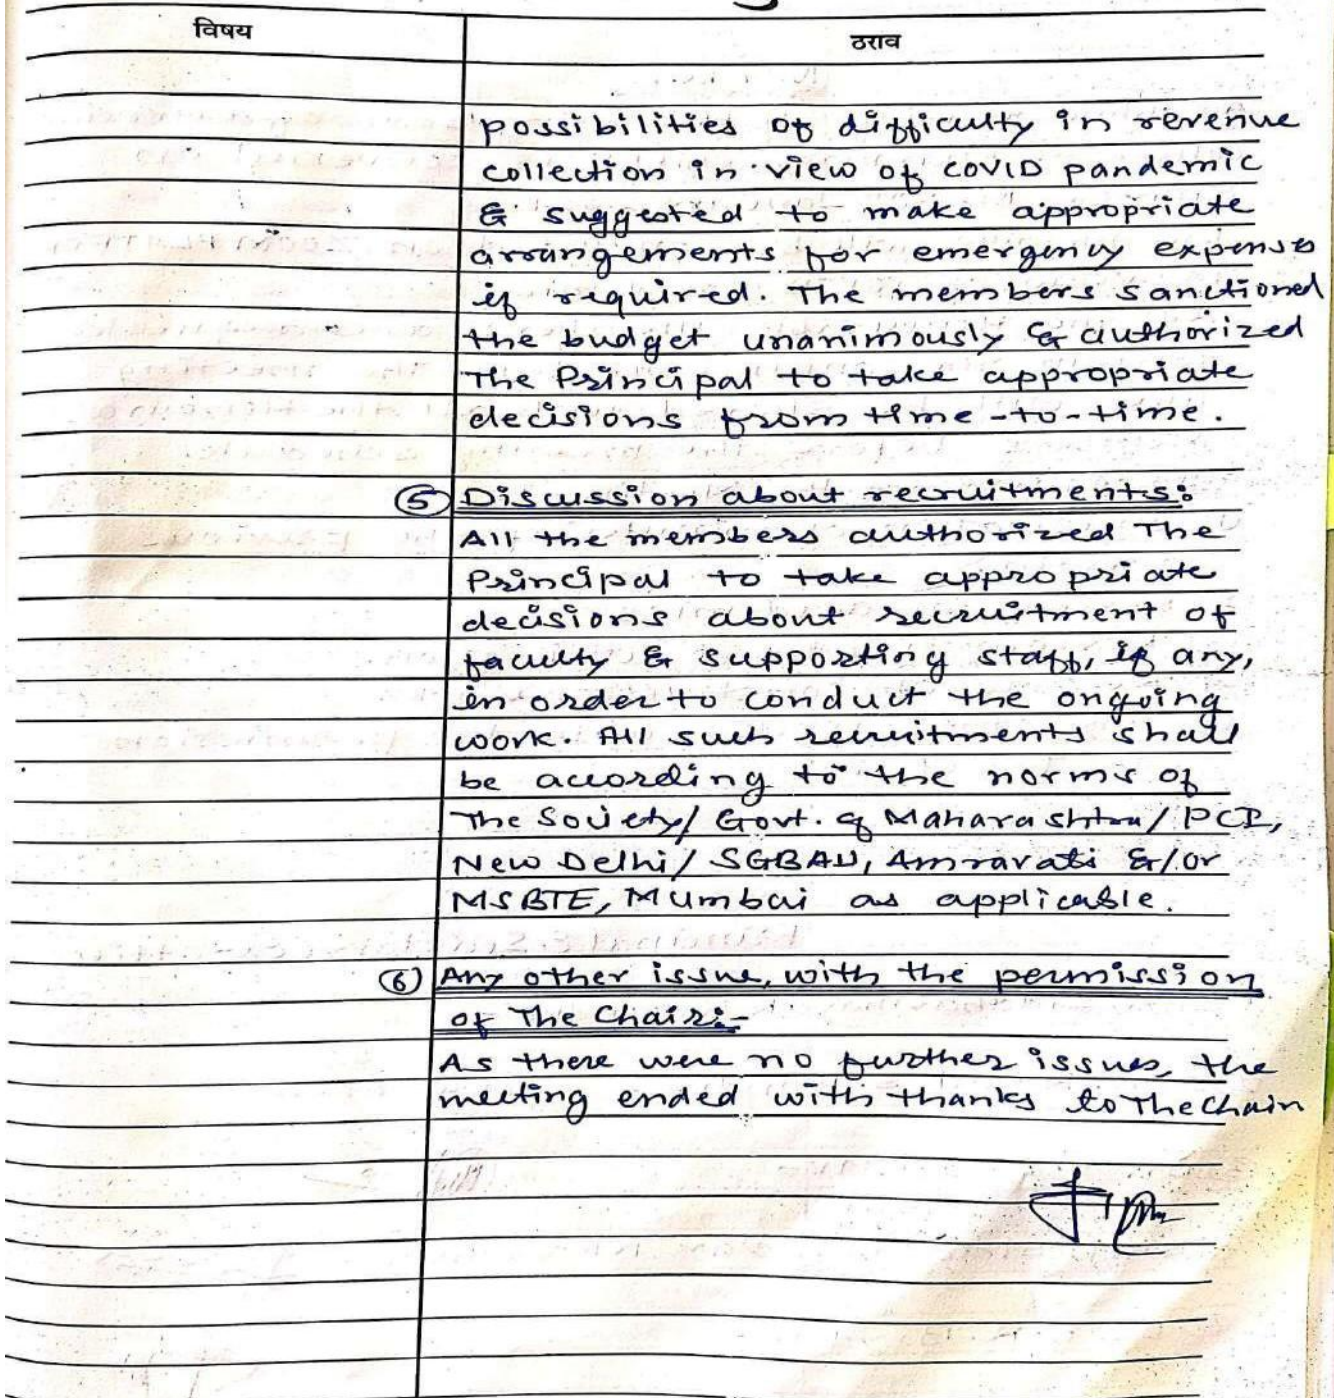 विषय
ठराव
possibilities of difficulty in revenue
collection in view of COVID pandemic
& suggested to make appropriate
arrangements for emergency expenses
if required. The members sanctioned
the budget unanimously & authorized
The Principal to take appropriate
decisions from time-to-time.
⑤ Discussion about recruitments:
All the members authorized The
Principal to take appropriate
decisions about recruitment of
faculty & supporting staff, if any,
in order to conduct the ongoing
work. All such recruitments shall
be according to the norms of
The Society/ Govt. of Maharashtra/ PCI,
New Delhi/ SGBAU, Amravati &/or
MSBTE, Mumbai as applicable.
⑥ Any other issue, with the permission
of The Chair:-
As there were no further issues, the
meeting ended with thanks to The Chair